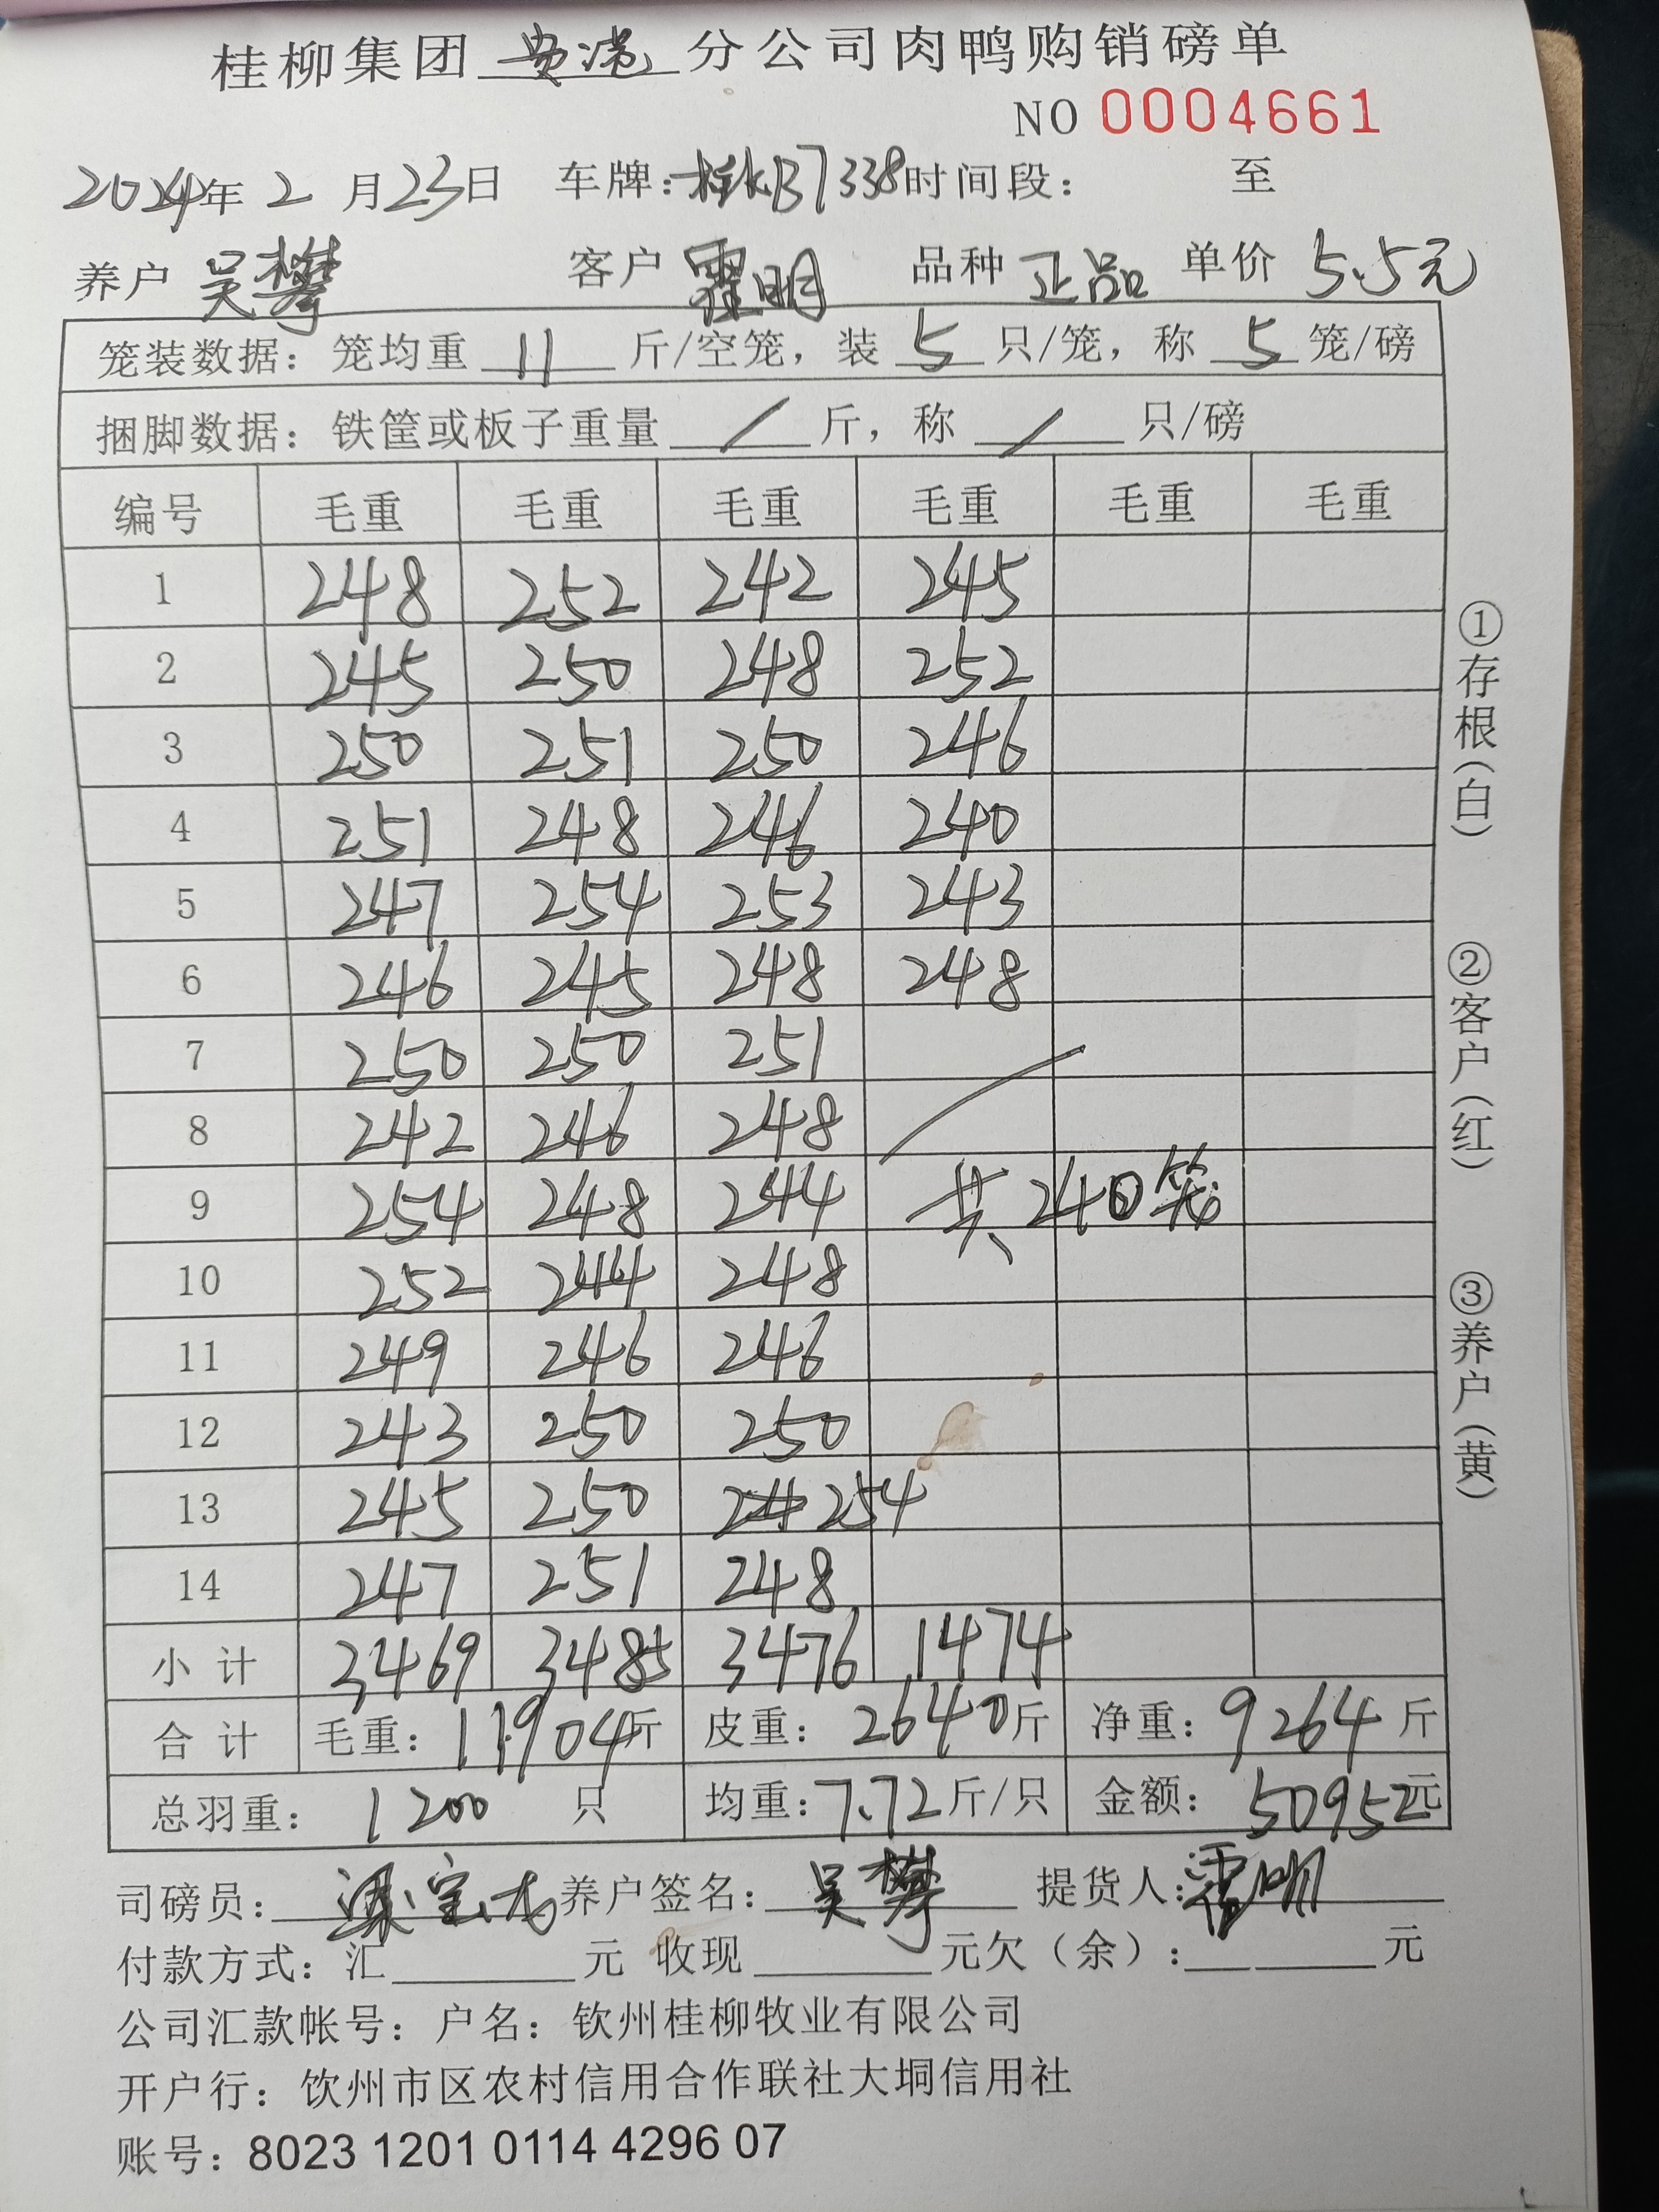 桂柳集团 贵港 分公司肉鸭购销磅单
NO 0004661
2024年 2 月 23 日 车牌：桂KB7338 时间段： 至
养户 吴攀 客户 霍明 品种 正品 单价 5.5元
笼装数据：笼均重 11 斤/空笼，装 5 只/笼，称 5 笼/磅
捆脚数据：铁筐或板子重量 / 斤，称 / 只/磅
编号 毛重 毛重 毛重 毛重 毛重 毛重
1 248 252 242 245
2 245 250 248 252
3 250 251 250 246
4 251 248 246 240
5 247 254 253 243
6 246 245 248 248
7 250 250 251
8 242 246 248
9 254 248 244 共240笼
10 252 244 248
11 249 246 246
12 243 250 250
13 245 250 254
14 247 251 248
小计 3469 3485 3476 1474
合计 毛重：11904斤 皮重：2640斤 净重：9264斤
总羽重：1200 只 均重：7.72斤/只 金额：50952元
司磅员： 养户签名：吴攀 提货人：霍明
付款方式：汇 元 收现 元欠（余）： 元
公司汇款帐号：户名：钦州桂柳牧业有限公司
开户行：饮州市区农村信用合作联社大垌信用社
账号：8023 1201 0114 4296 07
①存根（白）
②客户（红）
③养户（黄）